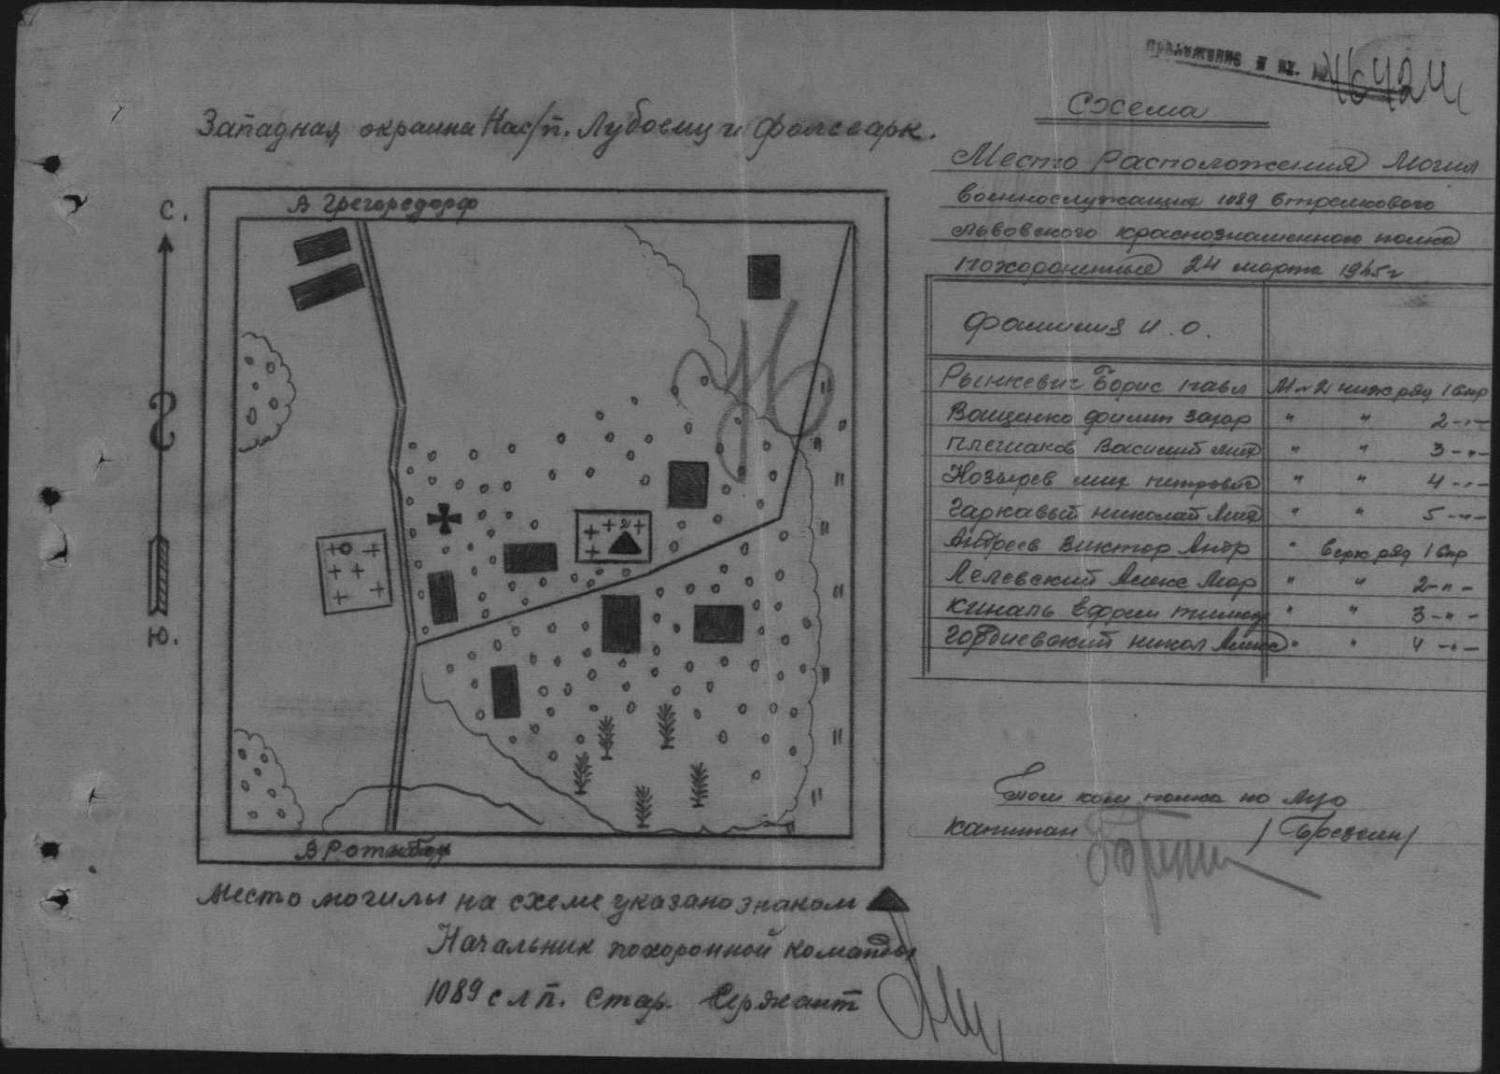 приложение к вх. №
Схема
Западная окраина Нас/п. Лубоемци Фольварк.
Место Расположения Могил
военнослужащих 1089 Стрелкового
Львовского краснознаменного полка
похороненные 24 марта 1945г
С.
В Грегорсдорф
Ю.
В Ротенбод
Фамилия И. О.
Рынкевич Борис Павл М-2 ниж ряд 1 стр
Ващенко Филип Захар " " 2 - " -
Плешаков Василий Мих " " 3 - " -
Козырев Мих Петрович " " 4 - " -
Гаркавый Николай Мих " " 5 - " -
Андреев Виктор Андр " верх ряд 1 стр
Лелевский Алекс Мар " " 2 - " -
Киналь Ефрим Тимоф " " 3 - " -
Гордиевский Никол Алекс " " 4 - " -
Пом ком полка по
капитан
Место могилы на схеме указано знаком
Начальник похоронной команды
1089 слп. Стар. Сержант